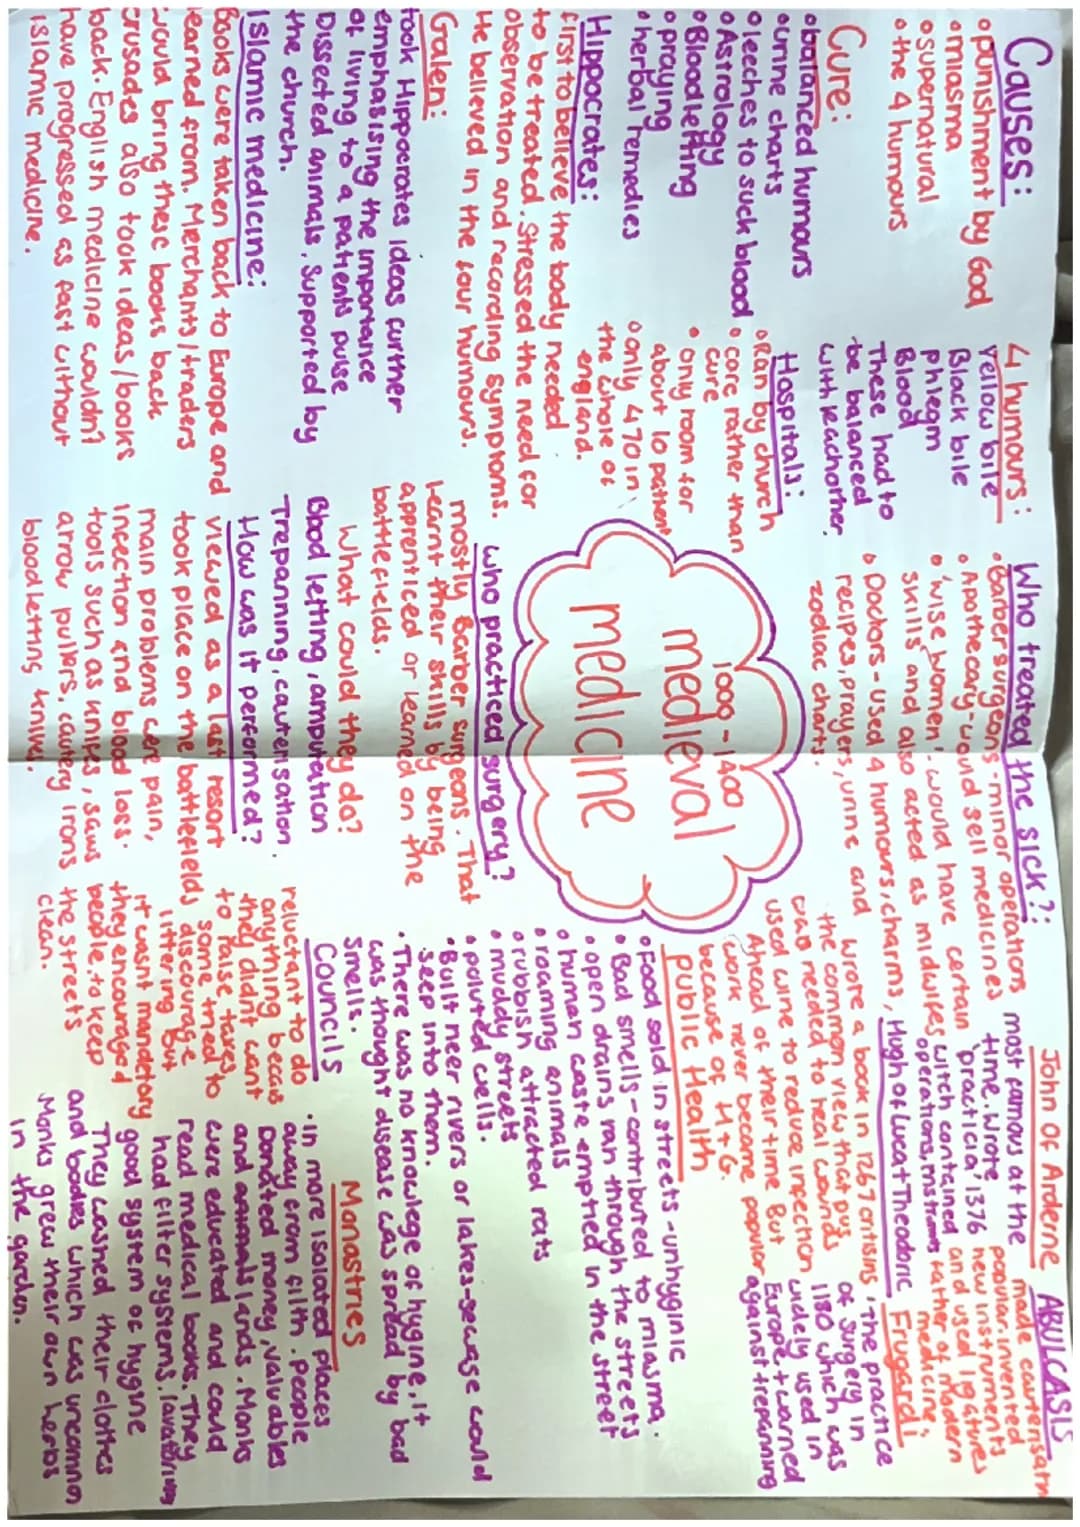 Causes:
• punishment by God
• miasma
• supernatural
• the 4 humours
Cure:
• balanced humours
• urine charts
• leeches to suck blood
• Astrology
• Bloodletting
• praying
• herbal remedies
Hippocrates:
first to believe the body needed
to be treated. Stressed the need for
observation and recording symptoms.
He believed in the four humours.
Galen:
took Hippocrates ideas further
emphasising the importance
of living to a patients pulse
Dissected animals, supported by
the church.
Islamic medicine:
Books were taken back to Europe and
learned from. Merchants/traders
would bring these books back
crusades also took ideas/books
back. English medicine wouldn't
have progressed as fast without
islamic medicine.
4 humours:
Yellow bile
Black bile
Phlegm
Blood
These had to
be balanced
with eachother
Hospitals:
• Ran by church
• care rather than
cure
• only room for
about 10 patient
• only 470 in
the whole of
england.
1000-1400
medieval
medicine
who practiced surgery?
mostly Barber surgeons. That
learnt their skills by being
apprenticed or learned on the
battlefields.
What could they do?
Blood letting, amputation
Trepanning, cauterisation.
How was it performed?
viewed as a last resort
took place on the battlefields
main problems were pain,
infection and blood loss.
tools such as knifes, saws
arrow pullers, cautery irons
bloodletting knive.
Who treated the sick?:
• Barber surgeons - minor operations
• Apothecary - would sell medicines
• 'wise women' - would have certain
skills and also acted as midwifes
• Doctors - used 4 humours, charms,
recipes, prayers, urine and
zodiac charts.
John of Arderne
most famous at the
time. wrote
'practicia', 1376
witch contained
operations, instruments
ABULCASIS
made cauterisatn
popular. invented
new instruments
and used ligatures
father of modern
medicine.
Hugh of Lucat Theodoric
wrote a book in 1267 critisins
the common view that pus
was needed to heal wounds
used wine to reduce infection
Ahead of their time But
work never became popular
because of H+G.
Frugardi
• The practice
of surgery in
1180 which was
widely used in
Europe + warned
against trepanning
public Health
• Food sold in streets - unhyginic
• Bad smells - contributed to miasma.
• open drains ran through the streets
• human waste emptied in the street
• roaming animals
• rubbish attracted rats
• muddy streets
• poluted wells.
• Built neer rivers or lakes - sewage could
seep into them.
• There was no knowlege of hygine, it
was thought disease was spread by bad
smells.
Councils
reluctant to do
anything becas
they didnt want
to raise taxes,
some tried to
discourage
littering but
it wasnt mandetory
they encouraged
people to keep
the streets
clean.
Monastries
• in more isolated places
away from filth. people
Donated money, valuables
and lands. Monks
were educated and could
read medical books. They
had filter systems,
good system of hygine
They washed their clothes
and bodies which was uncommon
Monks grew their own herbs
in the garden.